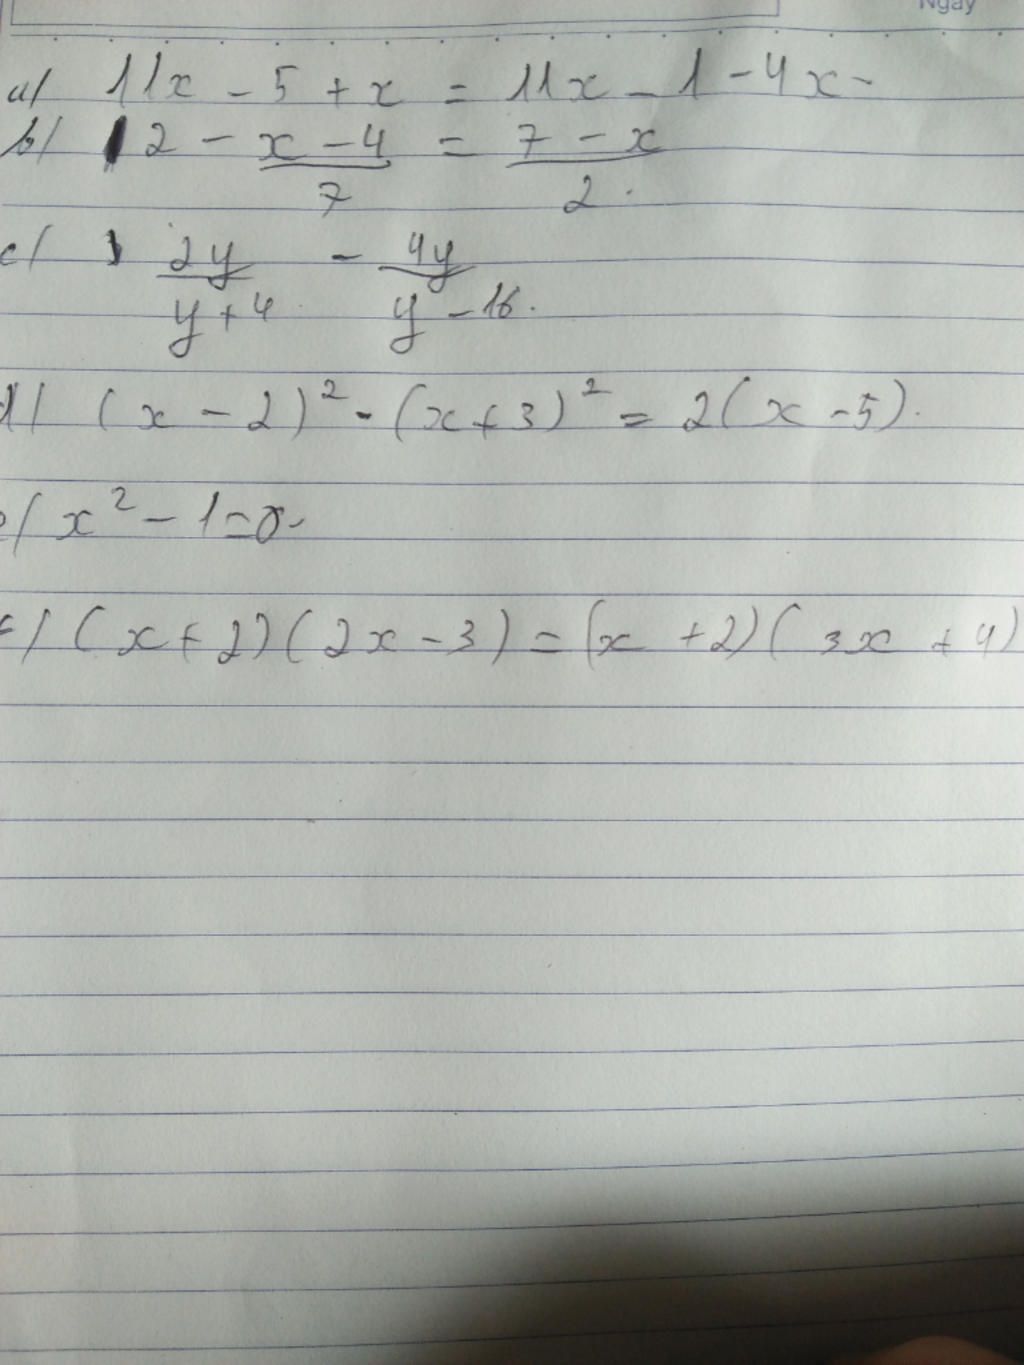 Ngày
a/ 11x - 5 + x = 11x - 1 - 4x
b/ 2 - (x - 4)/7 = (7 - x)/2.
c/ 2y/(y + 4) - 4y/(y - 16).
d/ (x - 2)² - (x + 3)² = 2(x - 5).
e/ x² - 1 = 0.
f/ (x + 2)(2x - 3) = (x + 2)(3x + 4)